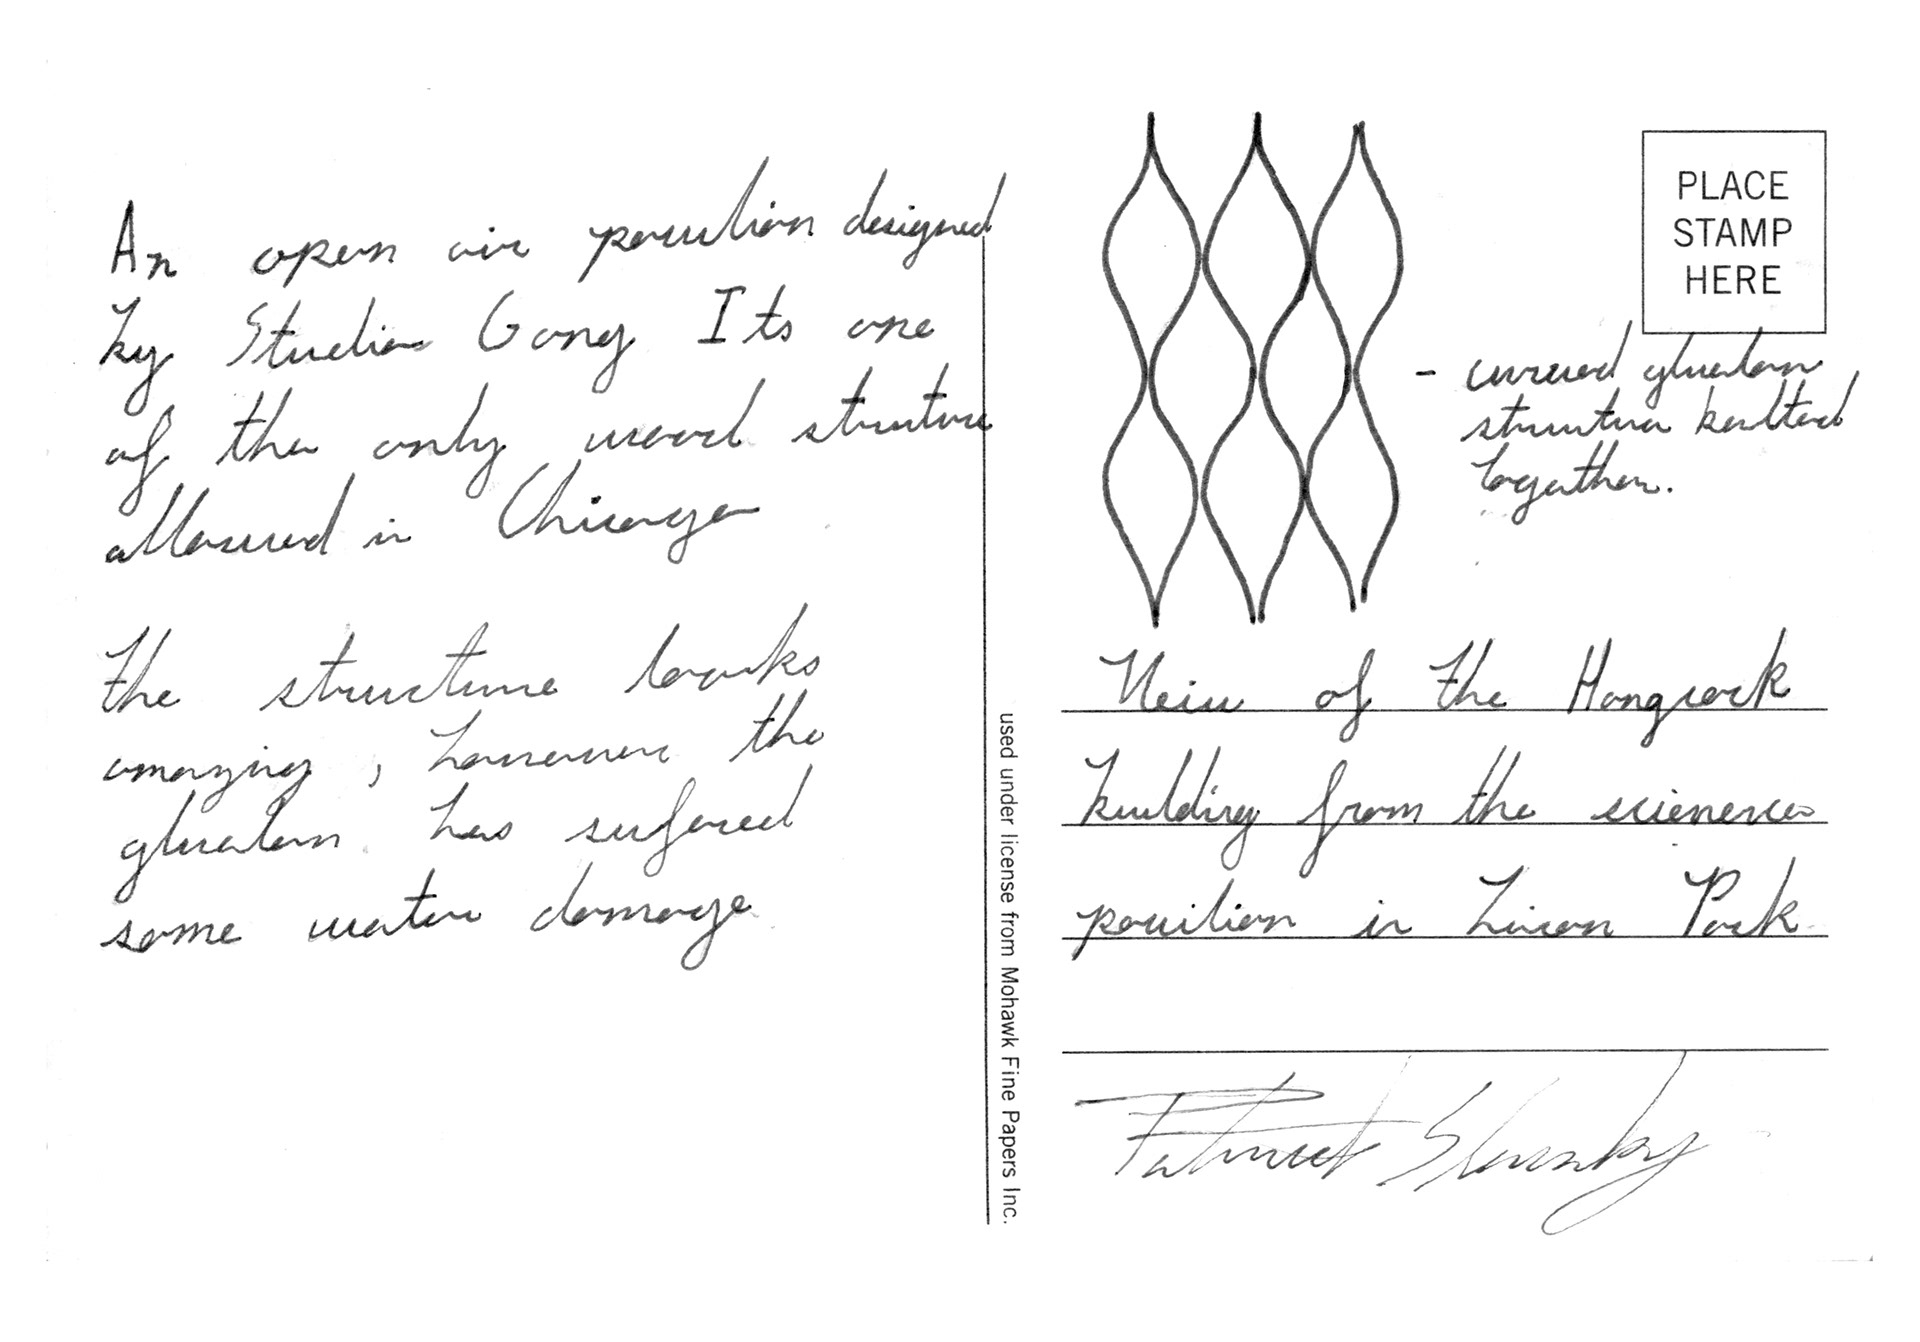 An open air pavilion designed
by Studio Gang Its one
of the only wood struture
allowed in Chicago
The structure looks
amazing, however the
glualam has sufered
some water damage
PLACE
STAMP
HERE
- curved glualam
structure boulted
togather.
used under license from Mohawk Fine Papers Inc.
Veiw of the Hangcock
building from the
pavilion in Park